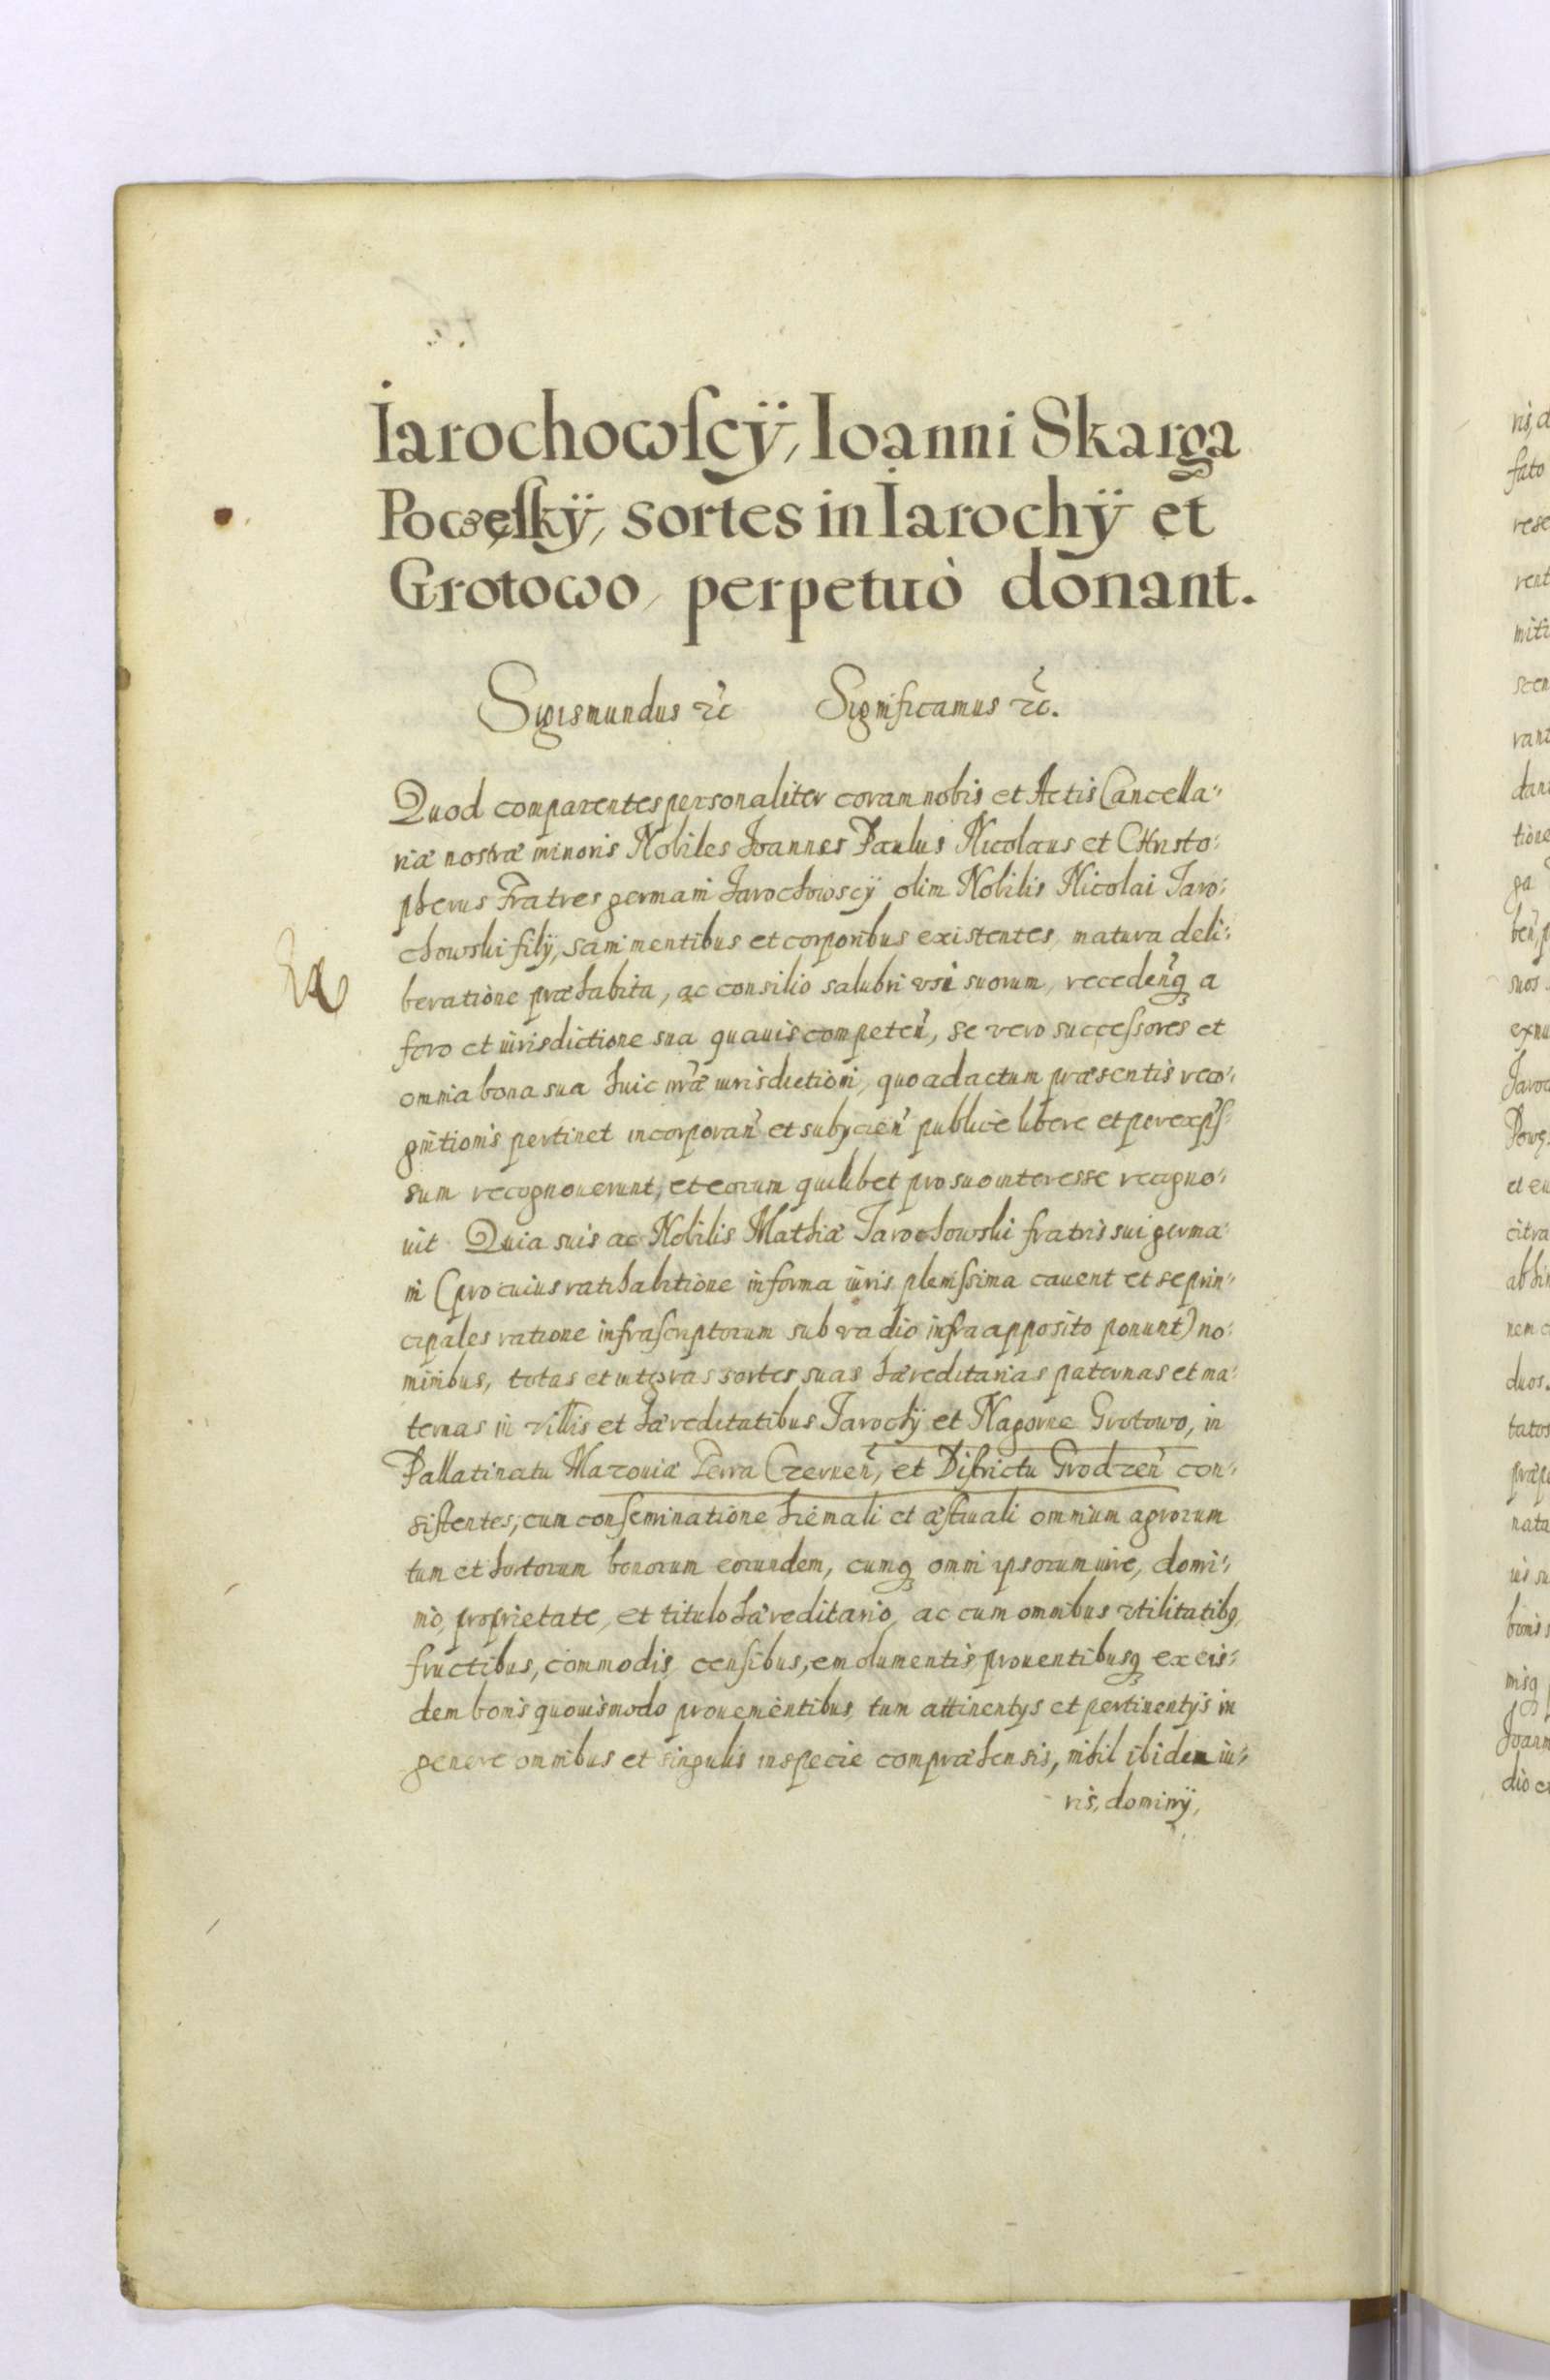 Iarochowſcÿ, Ioanni Skarga
Powęſkÿ, sortes in Iarochÿ et
Grotowo, perpetuò donant.
Sigismundus ꝛc̃ Significamus ꝛc̃.
Quod comparentes personaliter coram nobis et Actis Cancella-
riæ nostræ minoris Nobiles Ioannes Paulus Nicolaus et Christo-
pherus Fratres germani Iarochowscÿ olim Nobilis Nicolai Iaro-
chowski filij, sani mentibus et corporibus existentes, matura deli-
beratione præhabita, ac consilio salubri vsi suorum, recedeñq a
foro et iurisdictione sua quauis competeñ, se vero successores et
omnia bona sua huic nr̃æ iurisdictioni, quo ad actum præsentis reco-
gnitionis pertinet incorporañ et subijcieñ publice libere et per exp̃s-
sum recognouerunt, et eorum quilibet pro suo interesse recogno-
uit. Quia suis ac Nobilis Mathiæ Iarochowski fratris sui germa-
ni (pro cuius ratihabitione in forma iuris plenissima cauent et se prin-
cipales ratione infrascriptorum sub vadio infra apposito ponunt) no-
minibus, totas et integras sortes suas hæreditarias paternas et ma-
ternas in villis et hæreditatibus Iarochÿ et Nagorne Grotowo, in
Pallatinatu Mazouiæ Terra Czerneñ, et Districtu Grodzeñ con-
sistentes, cum conseminatione hiemali et æstiuali omnium agrorum
tum et hortorum bonorum eorundem, cumq omni ipsorum iure, domi-
nio, proprietate, et titulo hæreditario, ac cum omnibus vtilitatibq,
fructibus, commodis, censibus, emolumentis, prouentibusq ex eis-
dem bonis quouismodo prouenientibus, tum attinentijs et pertinentijs in
genere omnibus et singulis in specie compræhensis, nihil ibidem iu-
ris, dominij,